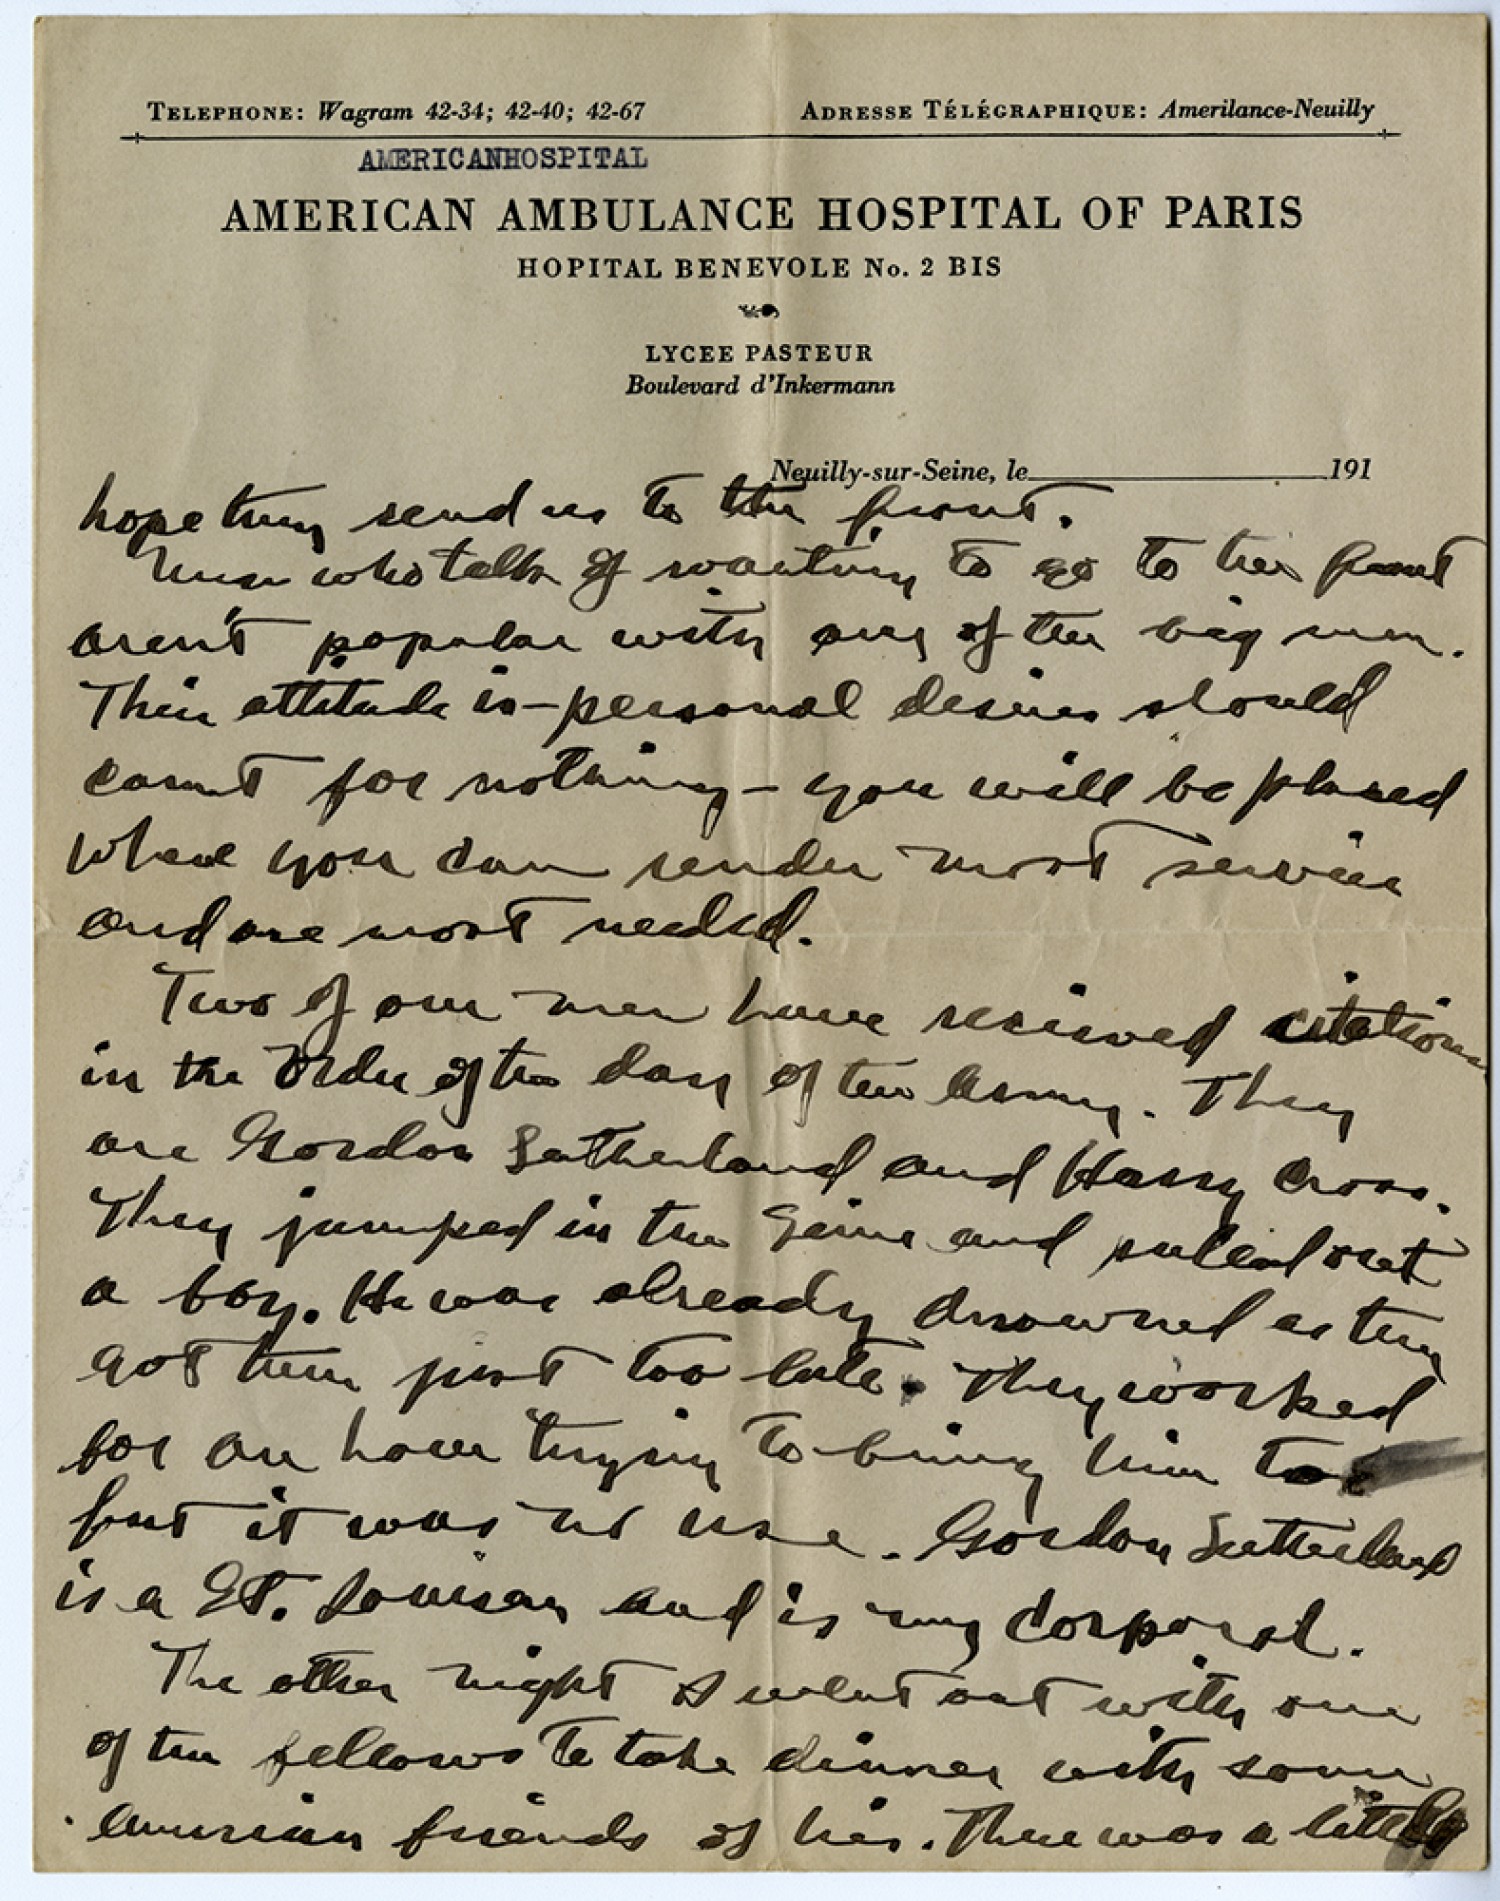 TELEPHONE: Wagram 42-34; 42-40; 42-67 ADRESSE TÉLÉGRAPHIQUE: Amerilance-Neuilly
AMERICANHOSPITAL
AMERICAN AMBULANCE HOSPITAL OF PARIS
HOPITAL BENEVOLE No. 2 BIS
LYCEE PASTEUR
Boulevard d'Inkermann
Neuilly-sur-Seine, le 191
hope they send us to the front.
Men who talk of wanting to go to the front
aren't popular with any of the big men.
Their attitude is - personal desires should
count for nothing - you will be placed
where you can render most service
and are most needed.
Two of our men have received citations
in the Order of the day of the Army. They
are Gordon Sutherland and Harry Cross.
They jumped in the Seine and pulled out
a boy. He was already drowned as they
got them just too late. They worked
for an hour trying to bring him to
but it was no use. Gordon Sutherland
is a St. Louisan and is my corporal.
The other night I went out with one
of the fellows to take dinner with some
American friends of his. There was a little